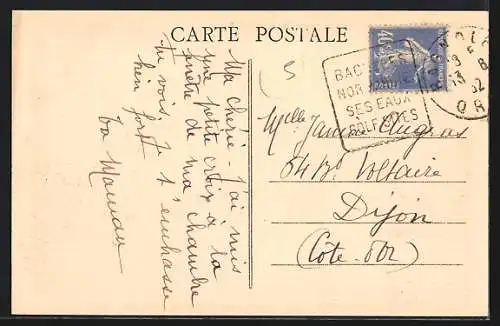 CARTE POSTALE
40c
BAGNOLES
NOR
SES EAUX
GOLF
OR
Ma chérie - j'ai mis
une petite croix à la
fenêtre de ma chambre
tu vois. Je t'embrasse
bien fort
ta Maman
Mlle Janine
64 Bd Voltaire
Dijon
(Côte-d'Or)